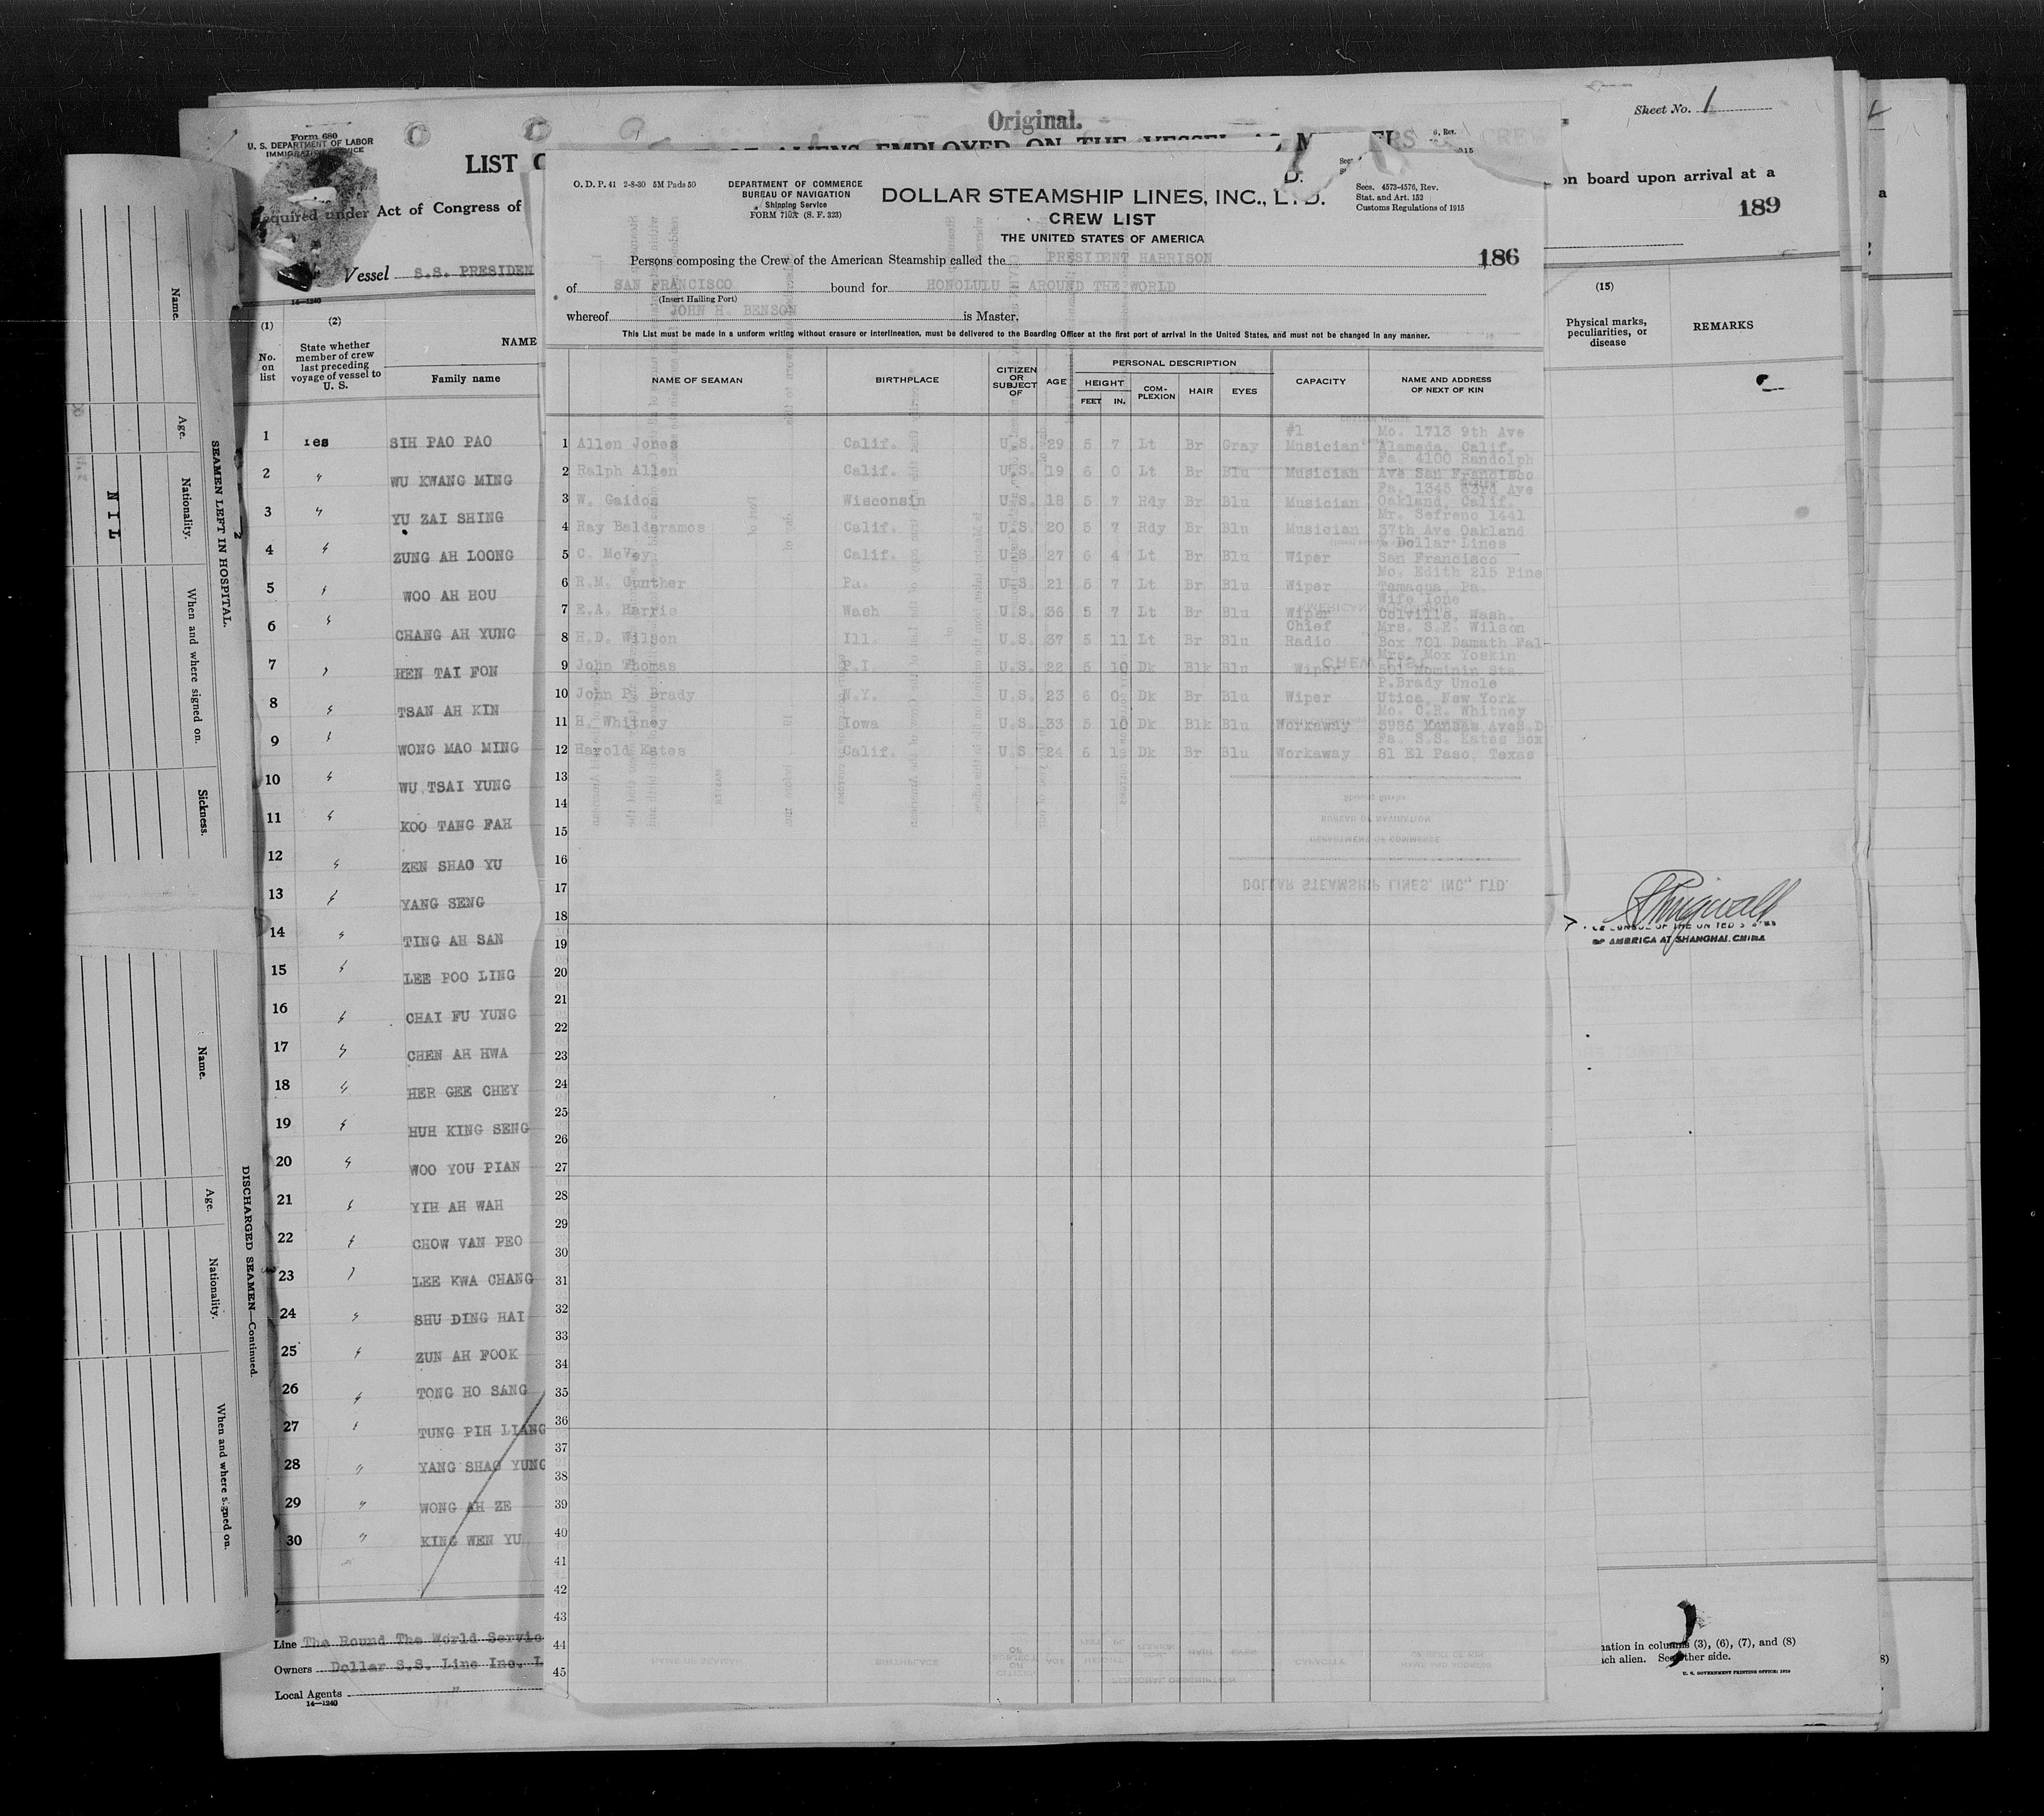 Original.
Sheet No. 1
Form 680
U. S. DEPARTMENT OF LABOR
LIST
required under Act of Congress of
on board upon arrival at a
189
Vessel S.S. PRESIDEN
14—1240
(1)
No. on list
(2)
State whether member of crew last preceding voyage of vessel to U. S.
NAME
Family name
(15)
Physical marks, peculiarities, or disease
REMARKS
1 Yes SIH PAO PAO
2 " WU KWANG MING
3 " YU ZAI SHING
4 " ZUNG AH LOONG
5 " WOO AH HOU
6 " CHANG AH YUNG
7 " HEN TAI FON
8 " TSAN AH KIN
9 " WONG MAO MING
10 " WU TSAI YUNG
11 " KOO TANG FAH
12 " ZEN SHAO YU
13 " YANG SENG
14 " TING AH SAN
15 " LEE POO LING
16 " CHAI FU YUNG
17 " CHEN AH HWA
18 " HER GEE CHEY
19 " HUH KING SENG
20 " WOO YOU PIAN
21 " YIH AH WAH
22 " CHOW VAN PEO
23 " LEE KWA CHANG
24 " SHU DING HAI
25 " ZUN AH FOOK
26 " TONG HO SANG
27 " TUNG PIH LIANG
28 " YANG SHAO YUNG
29 " WONG AH ZE
30 " KING WEN YU
Line The Round The World Servic
Owners Dollar S.S. Line Inc. L
Local Agents "
14—1240
SEAMEN LEFT IN HOSPITAL.
Name.
Age.
Nationality.
When and where signed on.
Sickness.
NIL
DISCHARGED SEAMEN—Continued.
Name.
Age.
Nationality.
When and where signed on.
O. D. P. 41 2-8-30 5M Pads 50
DEPARTMENT OF COMMERCE
BUREAU OF NAVIGATION
Shipping Service
FORM 710A (S. F. 323)
DOLLAR STEAMSHIP LINES, INC., LTD.
CREW LIST
THE UNITED STATES OF AMERICA
Secs. 4573-4576, Rev.
Stat. and Art. 152
Customs Regulations of 1915
Persons composing the Crew of the American Steamship called the PRESIDENT HARRISON
186
of SAN FRANCISCO bound for HONOLULU AROUND THE WORLD
(Insert Hailing Port)
whereof JOHN H. BENSON is Master.
This List must be made in a uniform writing without erasure or interlineation, must be delivered to the Boarding Officer at the first port of arrival in the United States, and must not be changed in any manner.
NAME OF SEAMAN
BIRTHPLACE
CITIZEN OR SUBJECT OF
AGE
PERSONAL DESCRIPTION
HEIGHT
FEET IN.
COMPLEXION
HAIR
EYES
CAPACITY
NAME AND ADDRESS OF NEXT OF KIN
1 Allen Jones Calif. U.S. 29 5 7 Lt Br Gray #1 Musician Mo. 1713 9th Ave Alameda, Calif.
2 Ralph Allen Calif. U.S. 19 6 0 Lt Br Blu Musician Fa. 4100 Randolph Ave San Francisco
3 W. Gaidos Wisconsin U.S. 18 5 7 Rdy Br Blu Musician Fa. 1345 83rd Ave Oakland, Calif.
4 Ray Balderamos Calif. U.S. 20 5 7 Rdy Br Blu Musician Mr. Sefreno 1441 37th Ave Oakland
5 C. McVey Calif. U.S. 27 6 4 Lt Br Blu Wiper % Dollar Lines San Francisco
6 R.M. Gunther Pa. U.S. 21 5 7 Lt Br Blu Wiper Mo. Edith 215 Pine Tamaqua, Pa.
7 E.A. Harris Wash U.S. 36 5 7 Lt Br Blu Wiper Wife Ione Colville, Wash.
8 H.D. Wilson Ill. U.S. 37 5 11 Lt Br Blu Chief Radio Mrs. S.E. Wilson Box 701 Damath Fal
9 John Thomas P.I. U.S. 22 5 10 Dk Blk Blu Wiper Mrs. Mox Yoskin 501 Mominin Sta.
10 John P. Brady N.Y. U.S. 23 6 0 Dk Br Blu Wiper P.Brady Uncle Utica, New York
11 H. Whitney Iowa U.S. 33 5 10 Dk Blk Blu Workaway Mo. C.R. Whitney 3986 Kansas Ave S.D
12 Harold Kates Calif. U.S. 24 6 1 Dk Br Blu Workaway Fa. S.S. Kates Box 81 El Paso, Texas
13
14
15
16
17
18
19
20
21
22
23
24
25
26
27
28
29
30
31
32
33
34
35
36
37
38
39
40
41
42
43
44
45
CONSUL OF THE UNITED STATES
OF AMERICA AT SHANGHAI, CHINA
ation in columns (3), (6), (7), and (8)
ch alien. See other side.
U. S. GOVERNMENT PRINTING OFFICE: 1929